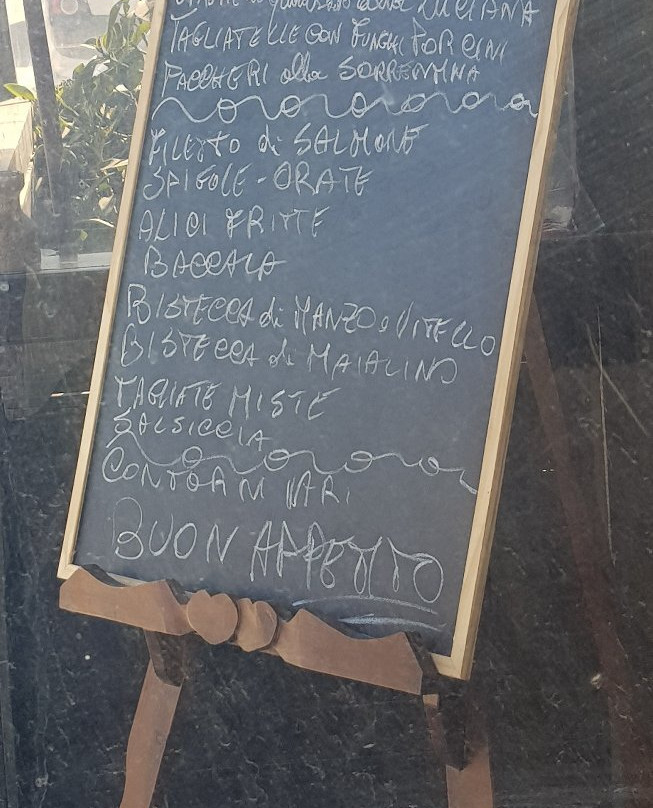 LUCIANA
TAGLIATELLE CON FUNGHI PORCINI
PACCHERI alla SORRENTINA
FILETTO di SALMONE
SPIGOLE - ORATE
ALICI FRITTE
BACCALA
BISTECCA di MANZO o VITELLO
BISTECCA di MAIALINO
TAGLIATE MISTE
SALSICCIA
CONTORNI VARI
BUON APPETITO